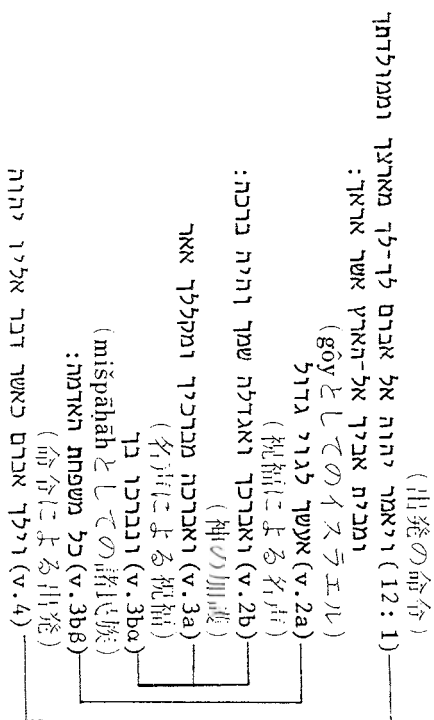 (出発の命令)
(12:1) ויאמר יהוה אל אברם לך-לך מארצך וממולדתך
ומבית אביך אל-הארץ אשר אראך:
(gôyとしてのイスラエル)
(v.2a) אעשך לגוי גדול
(祝福による名声)
(v.2b) ואברכך ואגדלה שמך והיה ברכה:
(神の加護)
(v.3a) ואברכה מברכיך ומקללך אאר
(名声による祝福)
(v.3bα) ונברכו בך
(mišpāḥāhとしての諸民族)
(v.3bβ) כל משפחת האדמה:
(命令による出発)
(v.4) וילך אברם כאשר דבר אליו יהוה